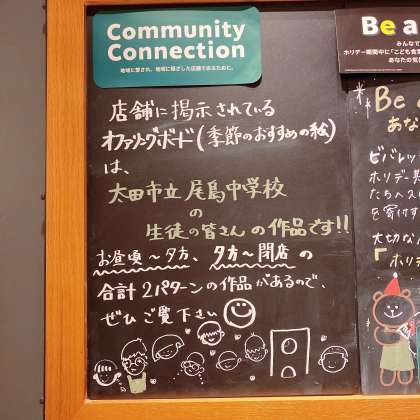 Community
Connection
地域に愛され、地域に根ざした店舗であるために。
店舗に掲示されている
オファリングボード(季節のおすすめの絵)
は、
太田市立 尾島中学校
の
生徒の皆さん の作品です!!
お昼頃～夕方、夕方～閉店 の
合計 2パターンの作品があるので、
ぜひ ご覧 下さい
Be a
みんなで
ホリデー期間中に「こども食
あなたの気
Be
あな
ビバレッ
ホリデー期
たち
を寄付す
大切な
「ホリデ